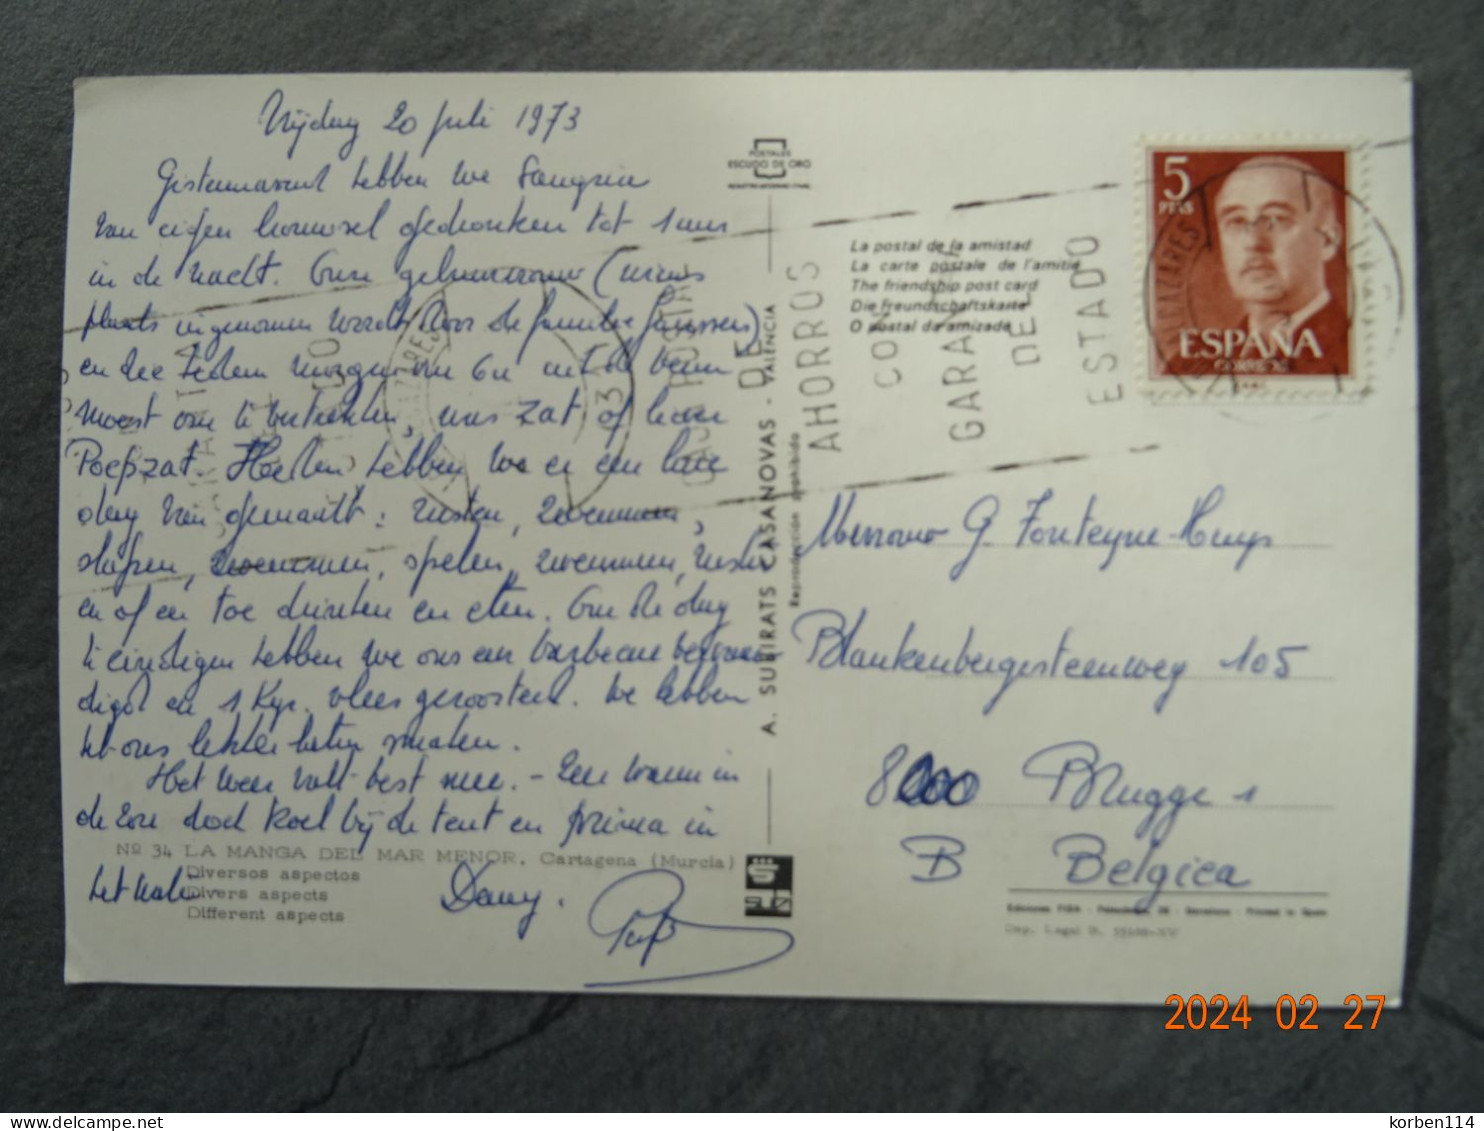 Vrijdag 20 juli 1973
Gisterenavond hebben we Sangria
van eigen brouwsel gedronken tot 1 uur
in de nacht. Onze gebuurvrouw (wiens
plaats ingenomen wordt door de familie Janssens)
en die heden morgen om 6u uit de veren
moest om te vertrekken, was zat of liever
Poepzat. Heden hebben we er een luie
dag van gemaakt: rusten, zwemmen,
slapen, zwemmen, spelen, zwemmen, rusten
en af en toe drinken en eten. Om de dag
te eindigen hebben we ons een barbecue
en 1 kgr. vlees geroosterd. We hebben
het ons lekker laten smaken.
Het weer valt best mee. - Zeer warm in
de zon doch koel bij de tent en prima in
het water
Dany.
POSTALES
ESCUDO DE ORO
La postal de la amistad
La carte postale de l'amitié
The friendship post card
Die freundschaftskarte
O postal da amizade
5
PTAS
ESPAÑA
CORREOS
DE
AHORROS
CON
GARANTIA
DEL
ESTADO
A. SUBIRATS CASANOVAS - VALENCIA
Reproducción prohibida
Mevrouw G. Fonteyne-Huys
Blankenbergsesteenweg 105
8000 Brugge 1
B Belgica
Nº 34 LA MANGA DEL MAR MENOR, Cartagena (Murcia)
Diversos aspectos
Divers aspects
Different aspects
Dep. Legal B.
2024 02 27
delcampe.net
korben114